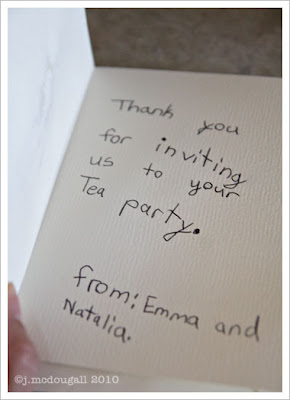 Thank you
for inviting
us to your
Tea party.
from: Emma and
Natalia.
©j.mcdougall 2010